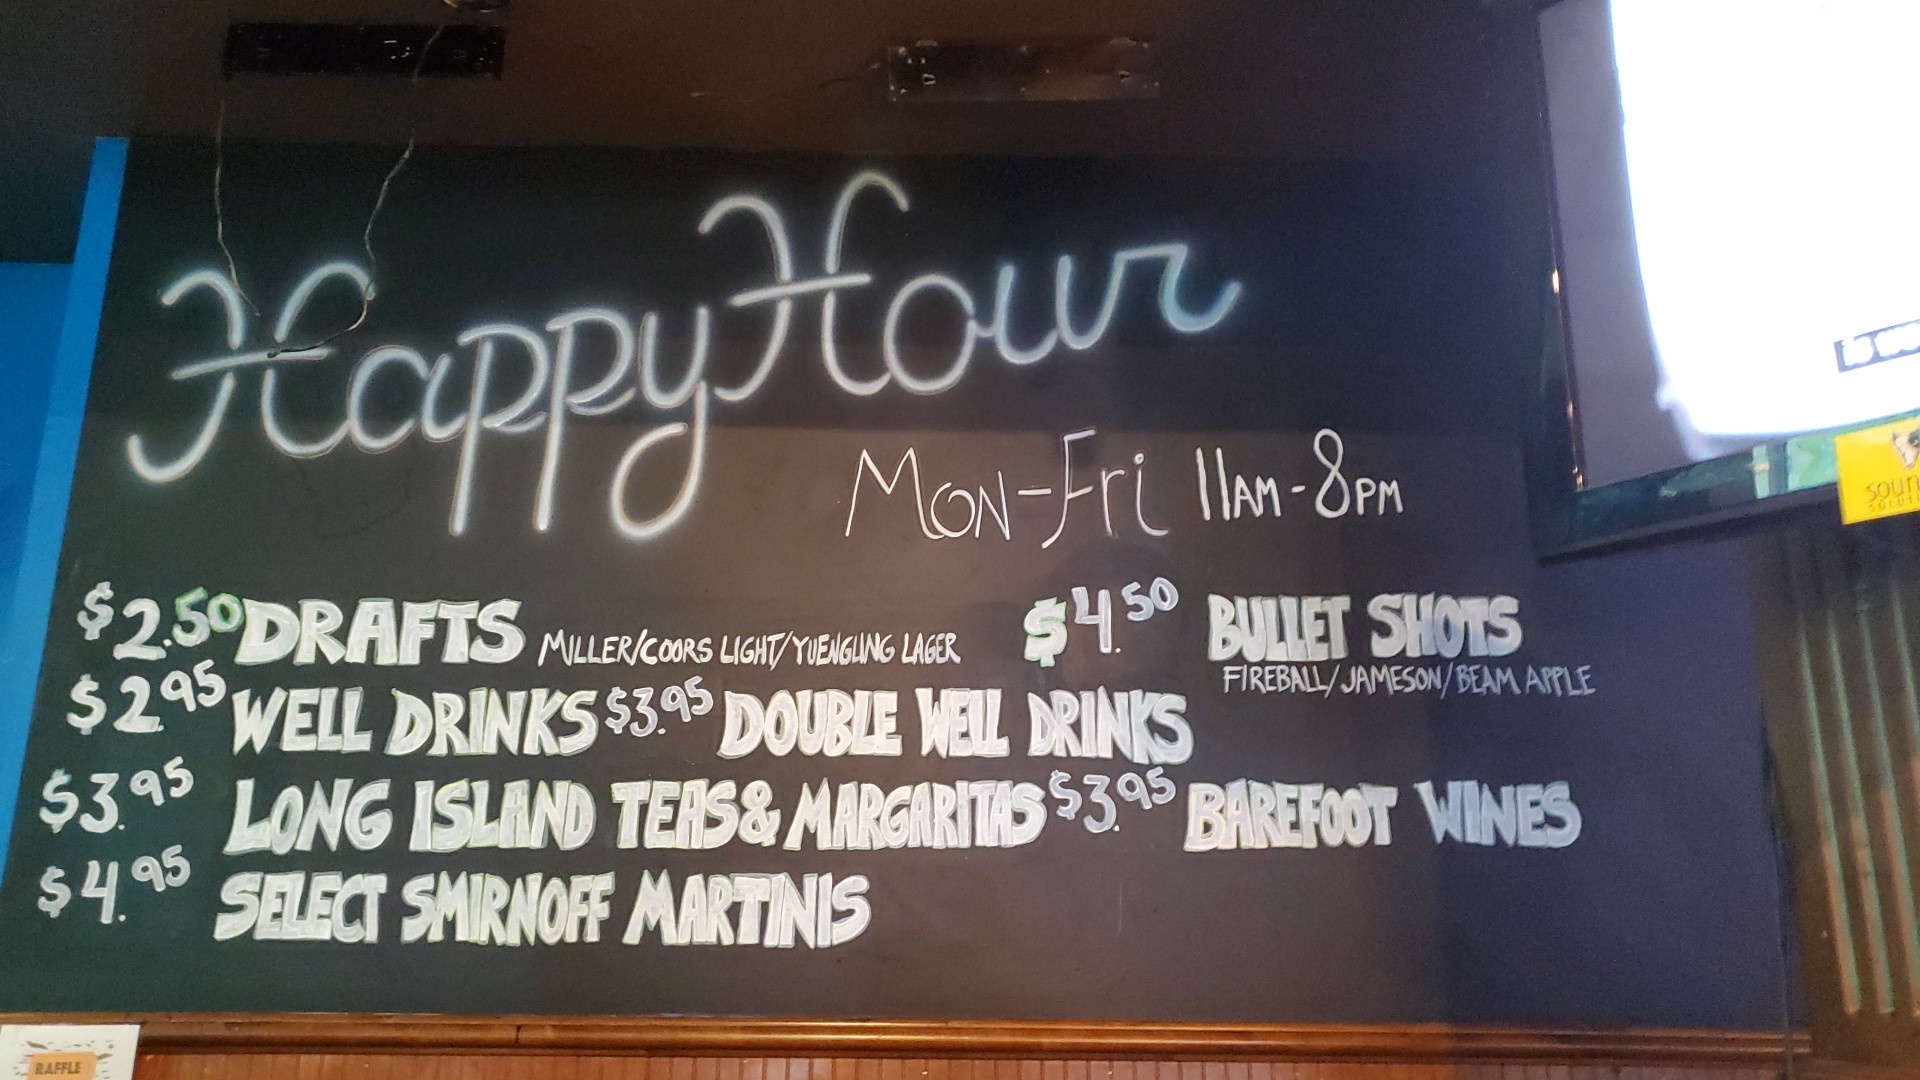 Happy Hour
Mon-Fri 11AM-8PM
$2.50 DRAFTS MILLER/COORS LIGHT/YUENGLING LAGER
$4.50 BULLET SHOTS
FIREBALL/JAMESON/BEAM APPLE
$2.95 WELL DRINKS $3.95 DOUBLE WELL DRINKS
$3.95 LONG ISLAND TEAS & MARGARITAS $3.95 BAREFOOT WINES
$4.95 SELECT SMIRNOFF MARTINIS
RAFFLE